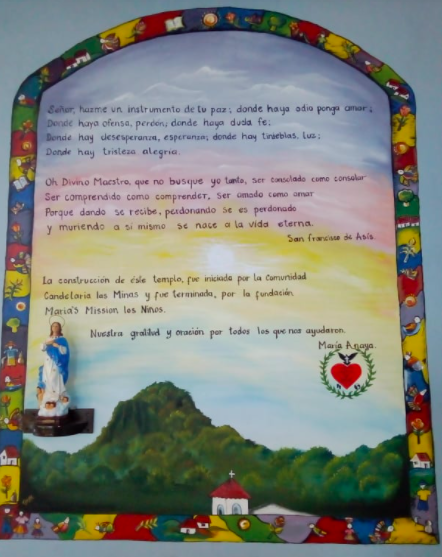 Señor, hazme un instrumento de tu paz; donde haya odio ponga amor;
Donde haya ofensa, perdón; donde haya duda fe;
Donde hay desesperanza, esperanza; donde hay tinieblas, luz;
Donde hay tristeza alegría.
Oh Divino Maestro, que no busque yo tanto, ser consolado como consolar
Ser comprendido como comprender, ser amado como amar
Porque dando se recibe, perdonando se es perdonado
y muriendo a si mismo se nace a la vida eterna.
San Francisco de Asís
La construcción de éste templo, fue iniciada por la Comunidad
Candelaria las Minas y fue terminada, por la fundación
Maria's Mission los Niños.
Nuestra gratitud y oración por todos los que nos ayudaron.
Maria Anaya.